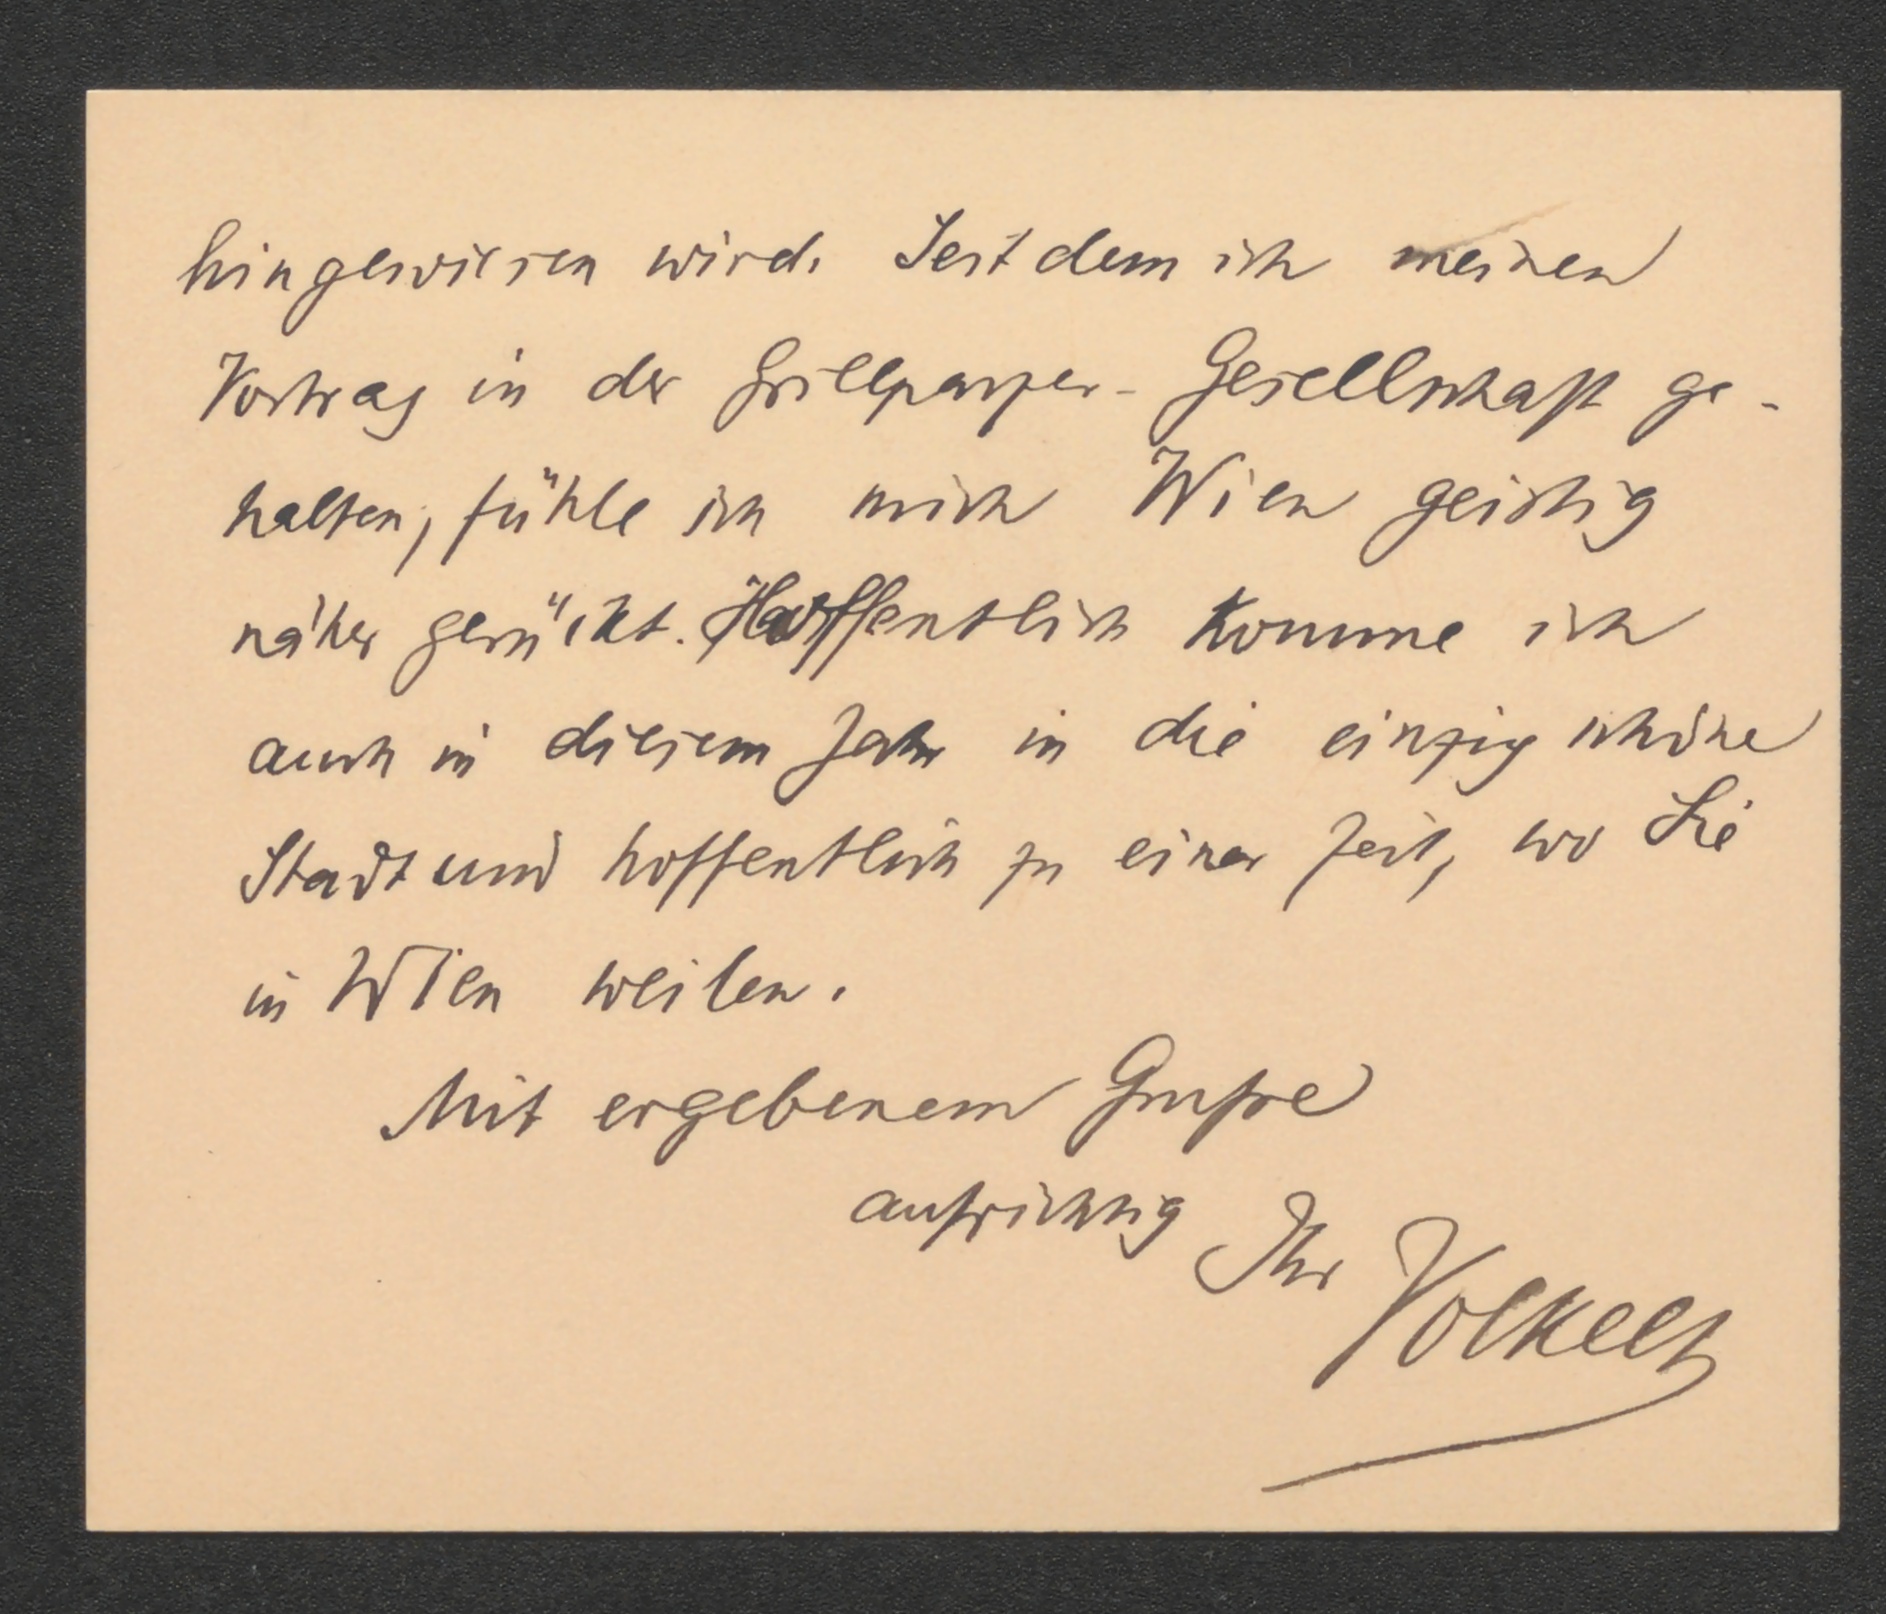 hingewiesen wird. Seitdem ich meinen
Vortrag in der Grillparzer-Gesellschaft ge-
halten, fühle ich mich Wien geistig
näher gerückt. Hoffentlich komme ich
auch in diesem Jahr in die einzig schöne
Stadt und hoffentlich zu einer Zeit, wo Sie
in Wien weilen.
Mit ergebenem Grusse
aufrichtig Ihr Volkelt